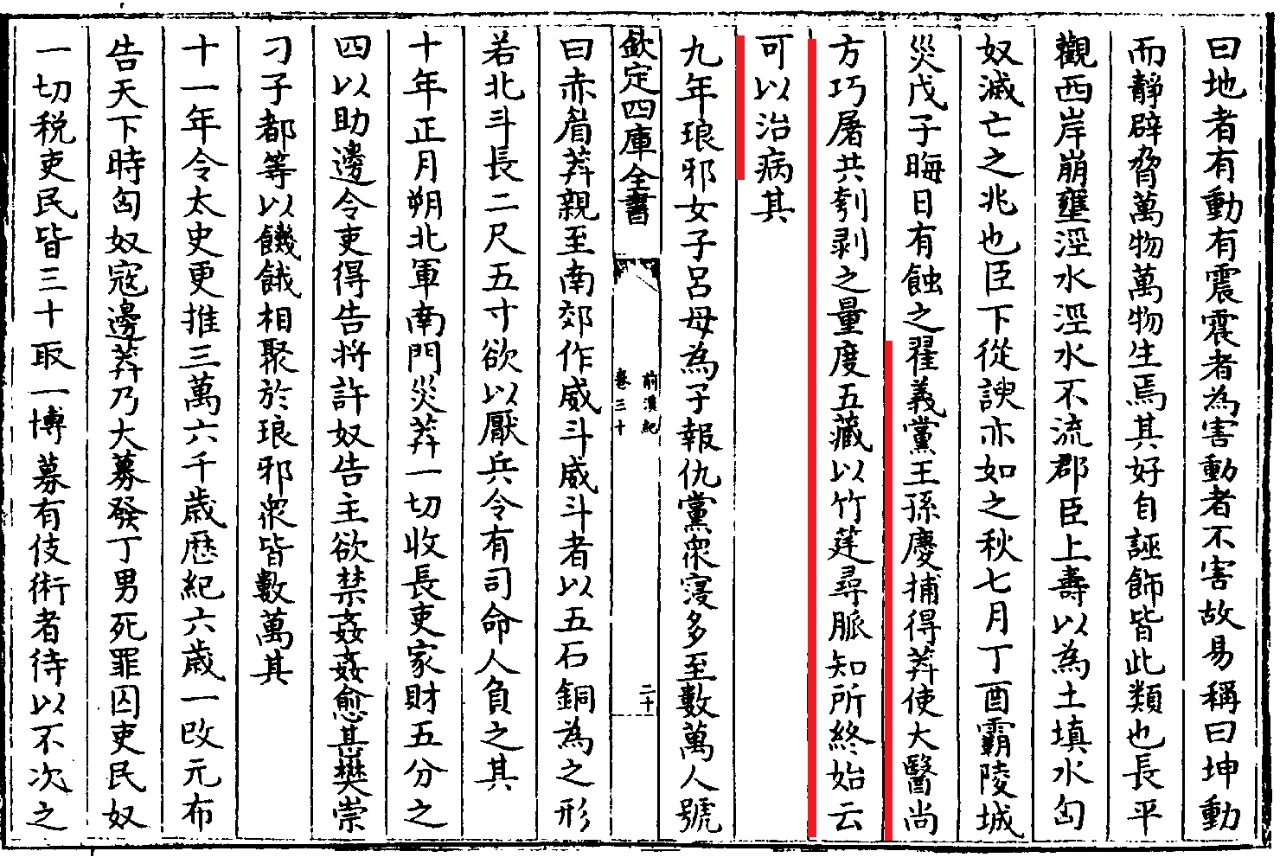 曰地者有動有震震者為害動者不害故易稱曰坤動
而靜辟脅萬物萬物生焉其好自誣飾皆此類也長平
觀西岸崩壅涇水涇水不流郡臣上壽以為土填水匈
奴滅亡之兆也臣下從諛亦如之秋七月丁酉霸陵城
災戊子晦日有蝕之翟義黨王孫慶捕得莽使大醫尚
方巧屠共刳剥之量度五藏以竹莛尋脈知所終始云
可以治病其
九年琅邪女子呂母為子報仇黨衆寖多至數萬人號
欽定四庫全書
前漢紀
卷三十
二十
曰赤眉莽親至南郊作威斗威斗者以五石銅為之形
若北斗長二尺五寸欲以厭兵令有司命人負之其
十年正月朔北軍南門災莽一切收長吏家財五分之
四以助邊令吏得告將許奴告主欲禁姦姦愈甚樊崇
刁子都等以饑餓相聚於琅邪衆皆數萬其
十一年令太史更推三萬六千歳歴紀六歳一改元布
告天下時匈奴寇邊莽乃大募發丁男死罪囚吏民奴
一切税吏民皆三十取一博募有伎術者待以不次之